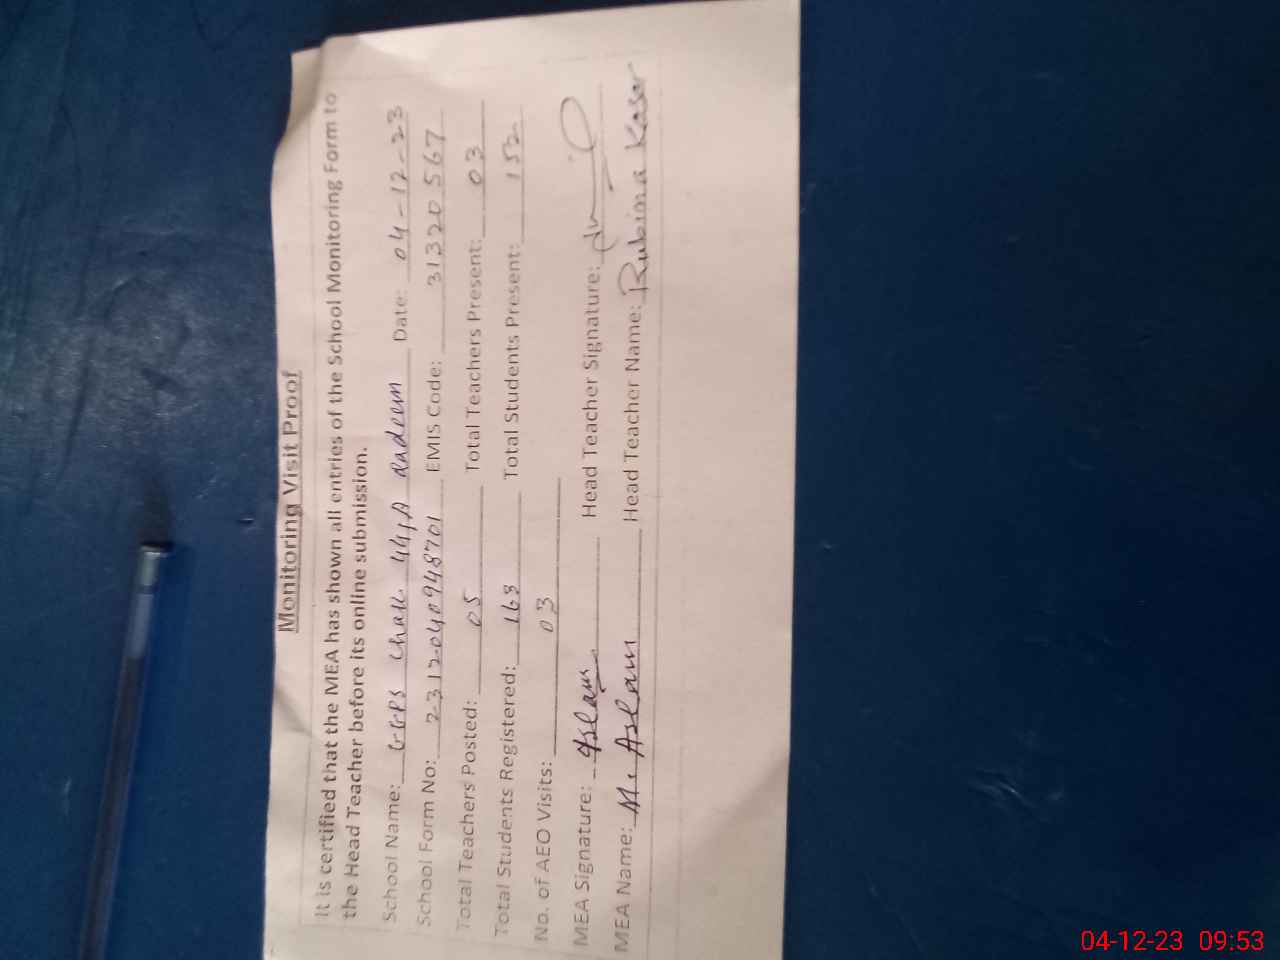 Monitoring Visit Proof
It is certified that the MEA has shown all entries of the School Monitoring Form to
the Head Teacher before its online submission.
School Name: GGPS Chak 44/A Qadeem Date: 04-12-23
School Form No: 2312040948701 EMIS Code: 31320567
Total Teachers Posted: 05 Total Teachers Present: 03
Total Students Registered: 163 Total Students Present: 152
No. of AEO Visits: 03
MEA Signature: Aslam Head Teacher Signature:
MEA Name: M. Aslam Head Teacher Name: Rubina Kosar
04-12-23 09:53